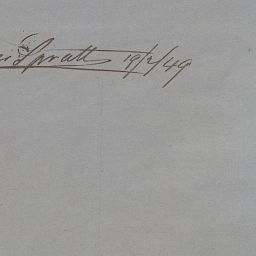 Spratt 19/2/49